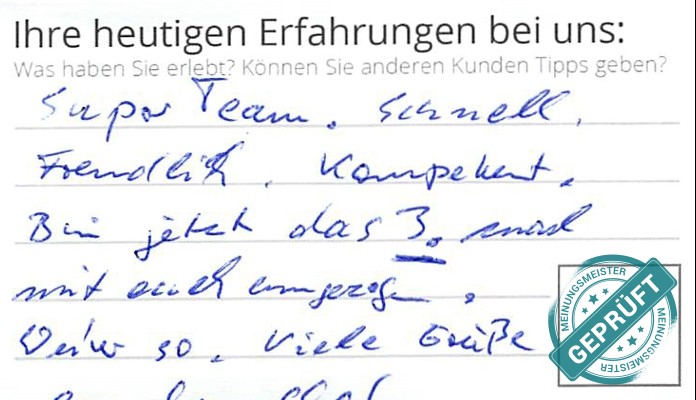 Ihre heutigen Erfahrungen bei uns:
Was haben Sie erlebt? Können Sie anderen Kunden Tipps geben?
Super Team. Schnell,
Freundlich, Kompetent.
Bin jetzt das 3. mal
mit euch umgezogen.
Weiter so. Viele Grüße
MEINUNGSMEISTER
GEPRÜFT
MEINUNGSMEISTER